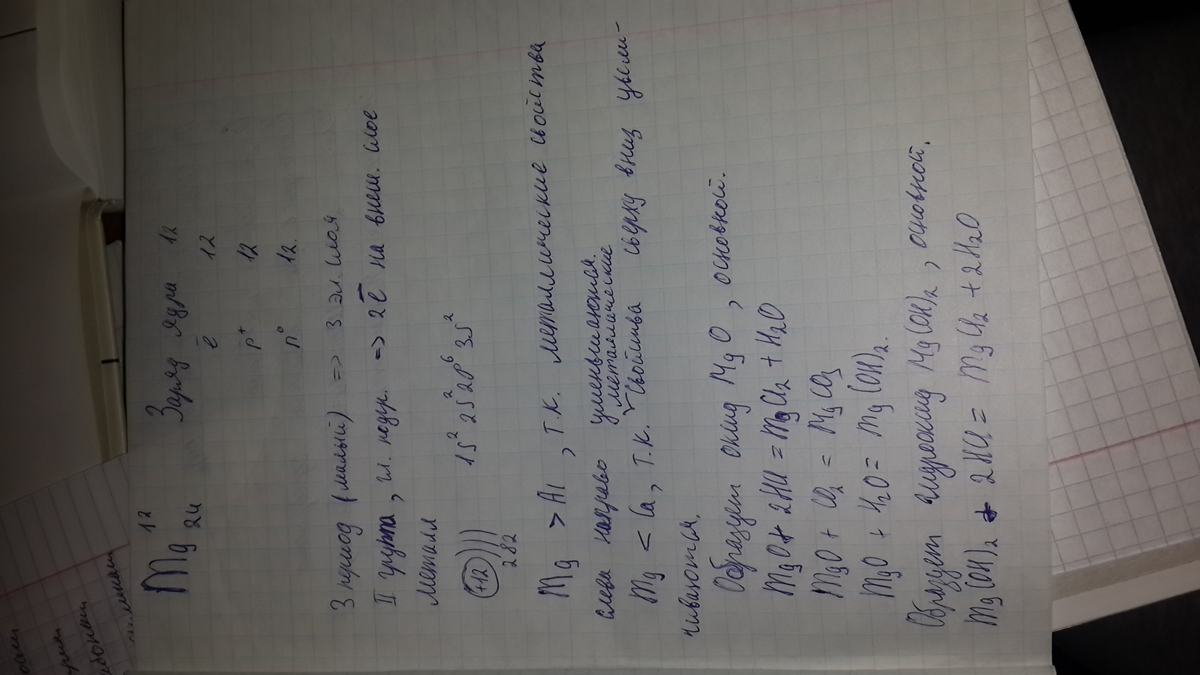 Mg 12 24 Заряд ядра 12
ē 12
p⁺ 12
n⁰ 12
3 период (малый) => 3 эл. слоя
II группа, гл. подгр. => 2ē на внеш. слое
Металл
+12 ))) 1s² 2s² 2p⁶ 3s²
2 8 2
Mg > Al, т.к. металлические свойства
слева направо уменьшаются.
металлические
Mg < Ca, т.к. свойства сверху вниз увели-
чиваются.
Образует оксид MgO, основной.
MgO + 2HCl = MgCl₂ + H₂O
MgO + CO₂ = MgCO₃
MgO + H₂O = Mg(OH)₂.
Образует гидроксид Mg(OH)₂, основной.
Mg(OH)₂ + 2HCl = MgCl₂ + 2H₂O